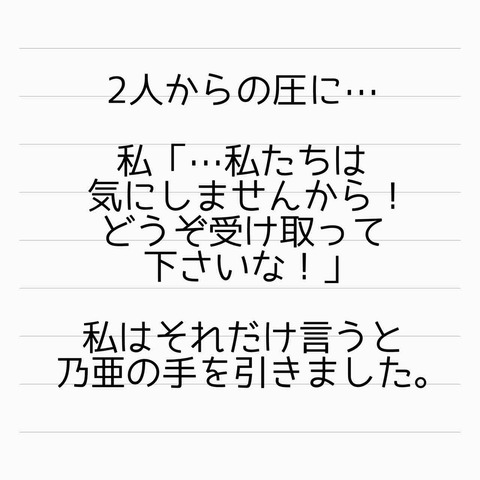 2人からの圧に…
私「…私たちは
気にしませんから！
どうぞ受け取って
下さいな！」
私はそれだけ言うと
乃亜の手を引きました。